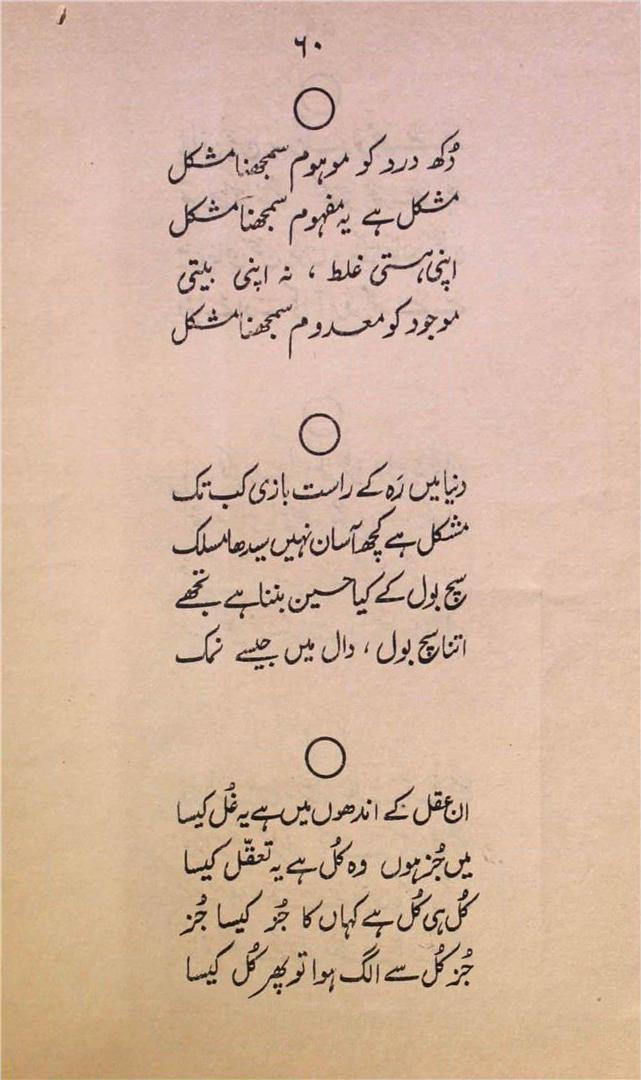 ۶۰
دُکھ درد کو موہوم سمجھنا مشکل
مشکل ہے یہ مفہوم سمجھنا مشکل
اپنی ہستی غلط ، نہ اپنی بیتی
موجود کو معدوم سمجھنا مشکل
دنیا میں رَہ کے راست بازی کب تک
مشکل ہے کچھ آسان نہیں سیدھا مسلک
سچ بول کے کیا حسین بننا ہے تجھے
اتنا سچ بول ، دال میں جیسے نمک
ان عقل کے اندھوں میں ہے یہ غُل کیسا
میں جُز ہوں وہ کُل ہے یہ تعقّل کیسا
کُل ہی کُل ہے کہاں کا جُز کیسا جُز
جُز کُل سے الگ ہوا تو پھر کُل کیسا